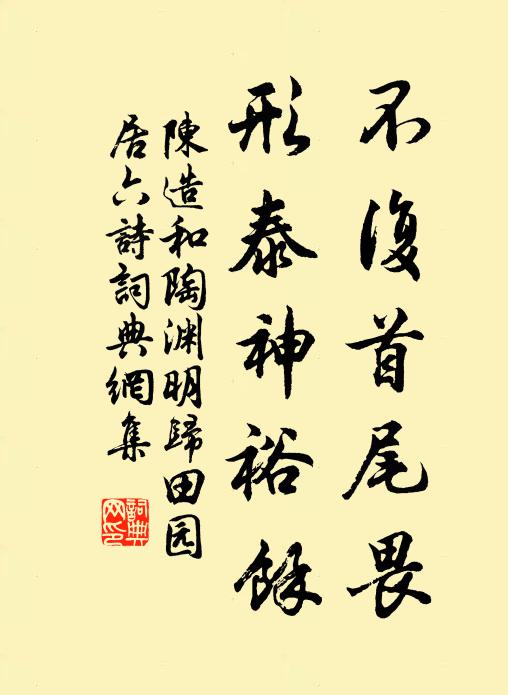 不復首尾畏
形泰神裕餘
陳造和陶渊明歸田园
居六詩詞典網集
詞典
网印